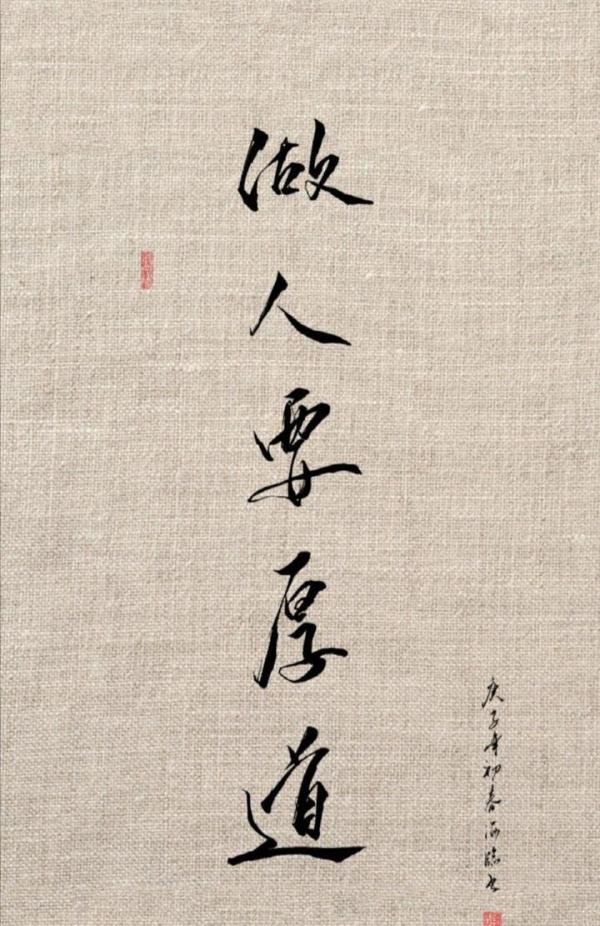 做人要厚道
庚子年初春 临书